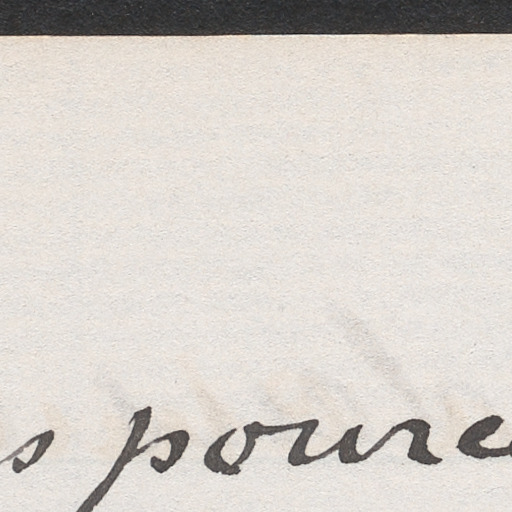 s pource